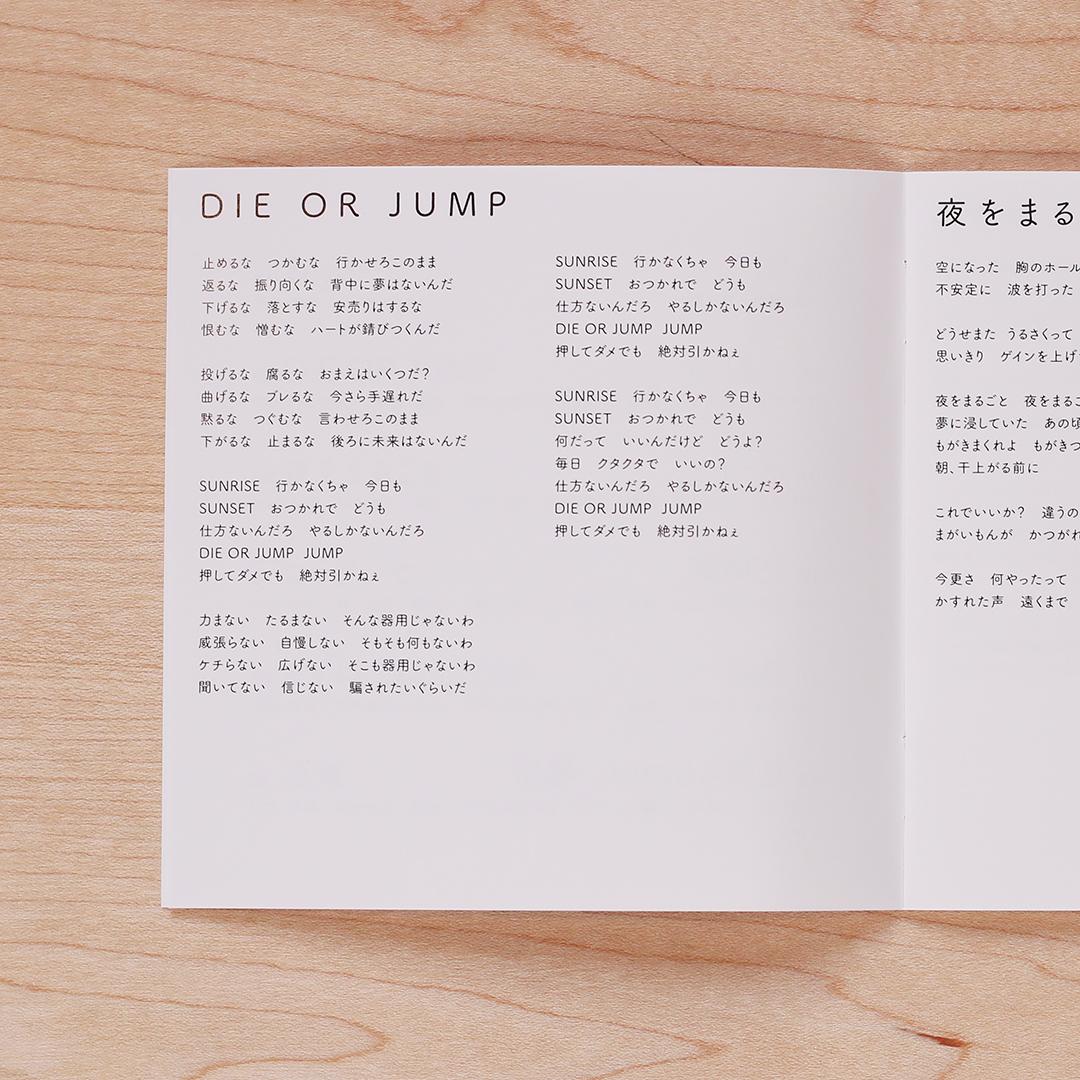 DIE OR JUMP
止めるな　つかむな　行かせろこのまま
返るな　振り向くな　背中に夢はないんだ
下げるな　落とすな　安売りはするな
恨むな　憎むな　ハートが錆びつくんだ
投げるな　腐るな　おまえはいくつだ？
曲げるな　ブレるな　今さら手遅れだ
黙るな　つぐむな　言わせろこのまま
下がるな　止まるな　後ろに未来はないんだ
SUNRISE　行かなくちゃ　今日も
SUNSET　おつかれで　どうも
仕方ないんだろ　やるしかないんだろ
DIE OR JUMP  JUMP
押してダメでも　絶対引かねぇ
力まない　たるまない　そんな器用じゃないわ
威張らない　自慢しない　そもそも何もないわ
ケチらない　広げない　そこも器用じゃないわ
聞いてない　信じない　騙されたいぐらいだ
SUNRISE　行かなくちゃ　今日も
SUNSET　おつかれで　どうも
仕方ないんだろ　やるしかないんだろ
DIE OR JUMP  JUMP
押してダメでも　絶対引かねぇ
SUNRISE　行かなくちゃ　今日も
SUNSET　おつかれで　どうも
何だって　いいんだけど　どうよ？
毎日　クタクタで　いいの？
仕方ないんだろ　やるしかないんだろ
DIE OR JUMP  JUMP
押してダメでも　絶対引かねぇ
夜をまる
空になった　胸のホール
不安定に　波を打った
どうせまた　うるさくって
思いきり　ゲインを上げ
夜をまるごと　夜をまるご
夢に浸していた　あの頃
もがきまくれよ　もがきつ
朝、干上がる前に
これでいいか？　違うの
まがいもんが　かつがれ
今更さ　何やったって
かすれた声　遠くまで